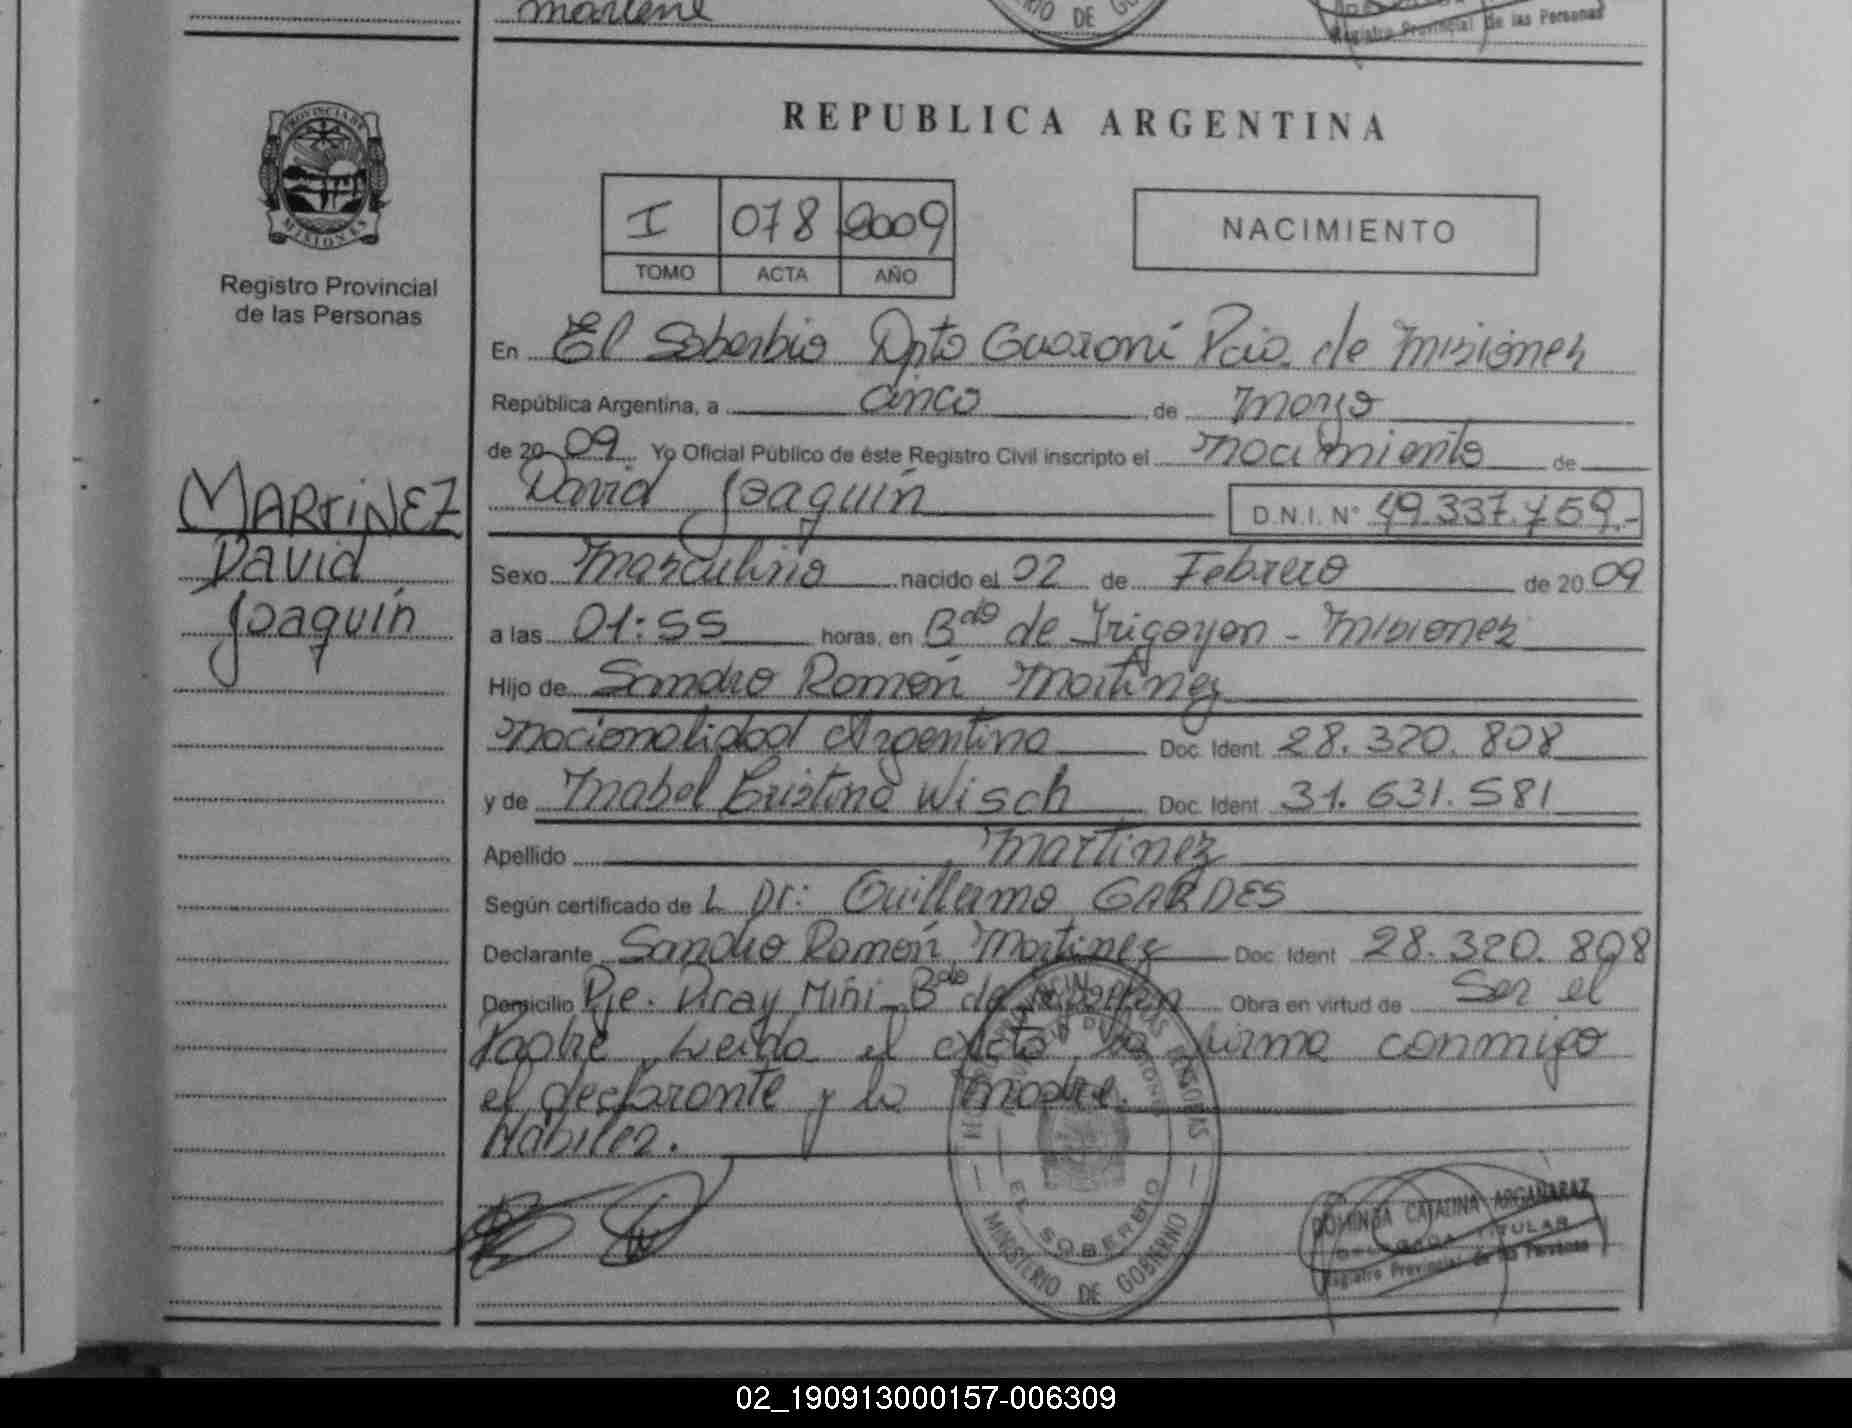 marlene
Registro Provincial de las Personas
PROVINCIA DE
MISIONES
Registro Provincial
de las Personas
MARTINEZ
David
Joaquín
REPUBLICA ARGENTINA
I 078 2009
TOMO ACTA AÑO
NACIMIENTO
En El Soberbio Dpto Guaraní Pcia. de Misiones
República Argentina, a cinco de Marzo
de 2009. Yo Oficial Público de éste Registro Civil inscripto el nacimiento de
David Joaquín D.N.I. N° 49.337.759.-
Sexo Masculino nacido el 02 de Febrero de 2009
a las 01:55 horas, en Bdo de Irigoyen - Misiones
Hijo de Sandro Ramón Martínez
nacionalidad Argentina Doc. Ident. 28.320.808
y de Mabel Cristina Wisch Doc. Ident. 31.631.581
Apellido Martinez
Según certificado de L Dr: Guillermo GARDES
Declarante Sandro Ramón Martinez Doc. Ident. 28.320.808
Domicilio Pje. Piray Miñi - Bdo de Irigoyen Obra en virtud de Ser el
Padre Leida el Acta, la firma conmigo
el declarante y la madre.
Habiles.
EL SOBERBIO
MINISTERIO DE GOBIERNO
DOMINGA CATALINA ARGAÑARAZ
DELEGADA TITULAR
Registro Provincial de las Personas
02_190913000157-006309